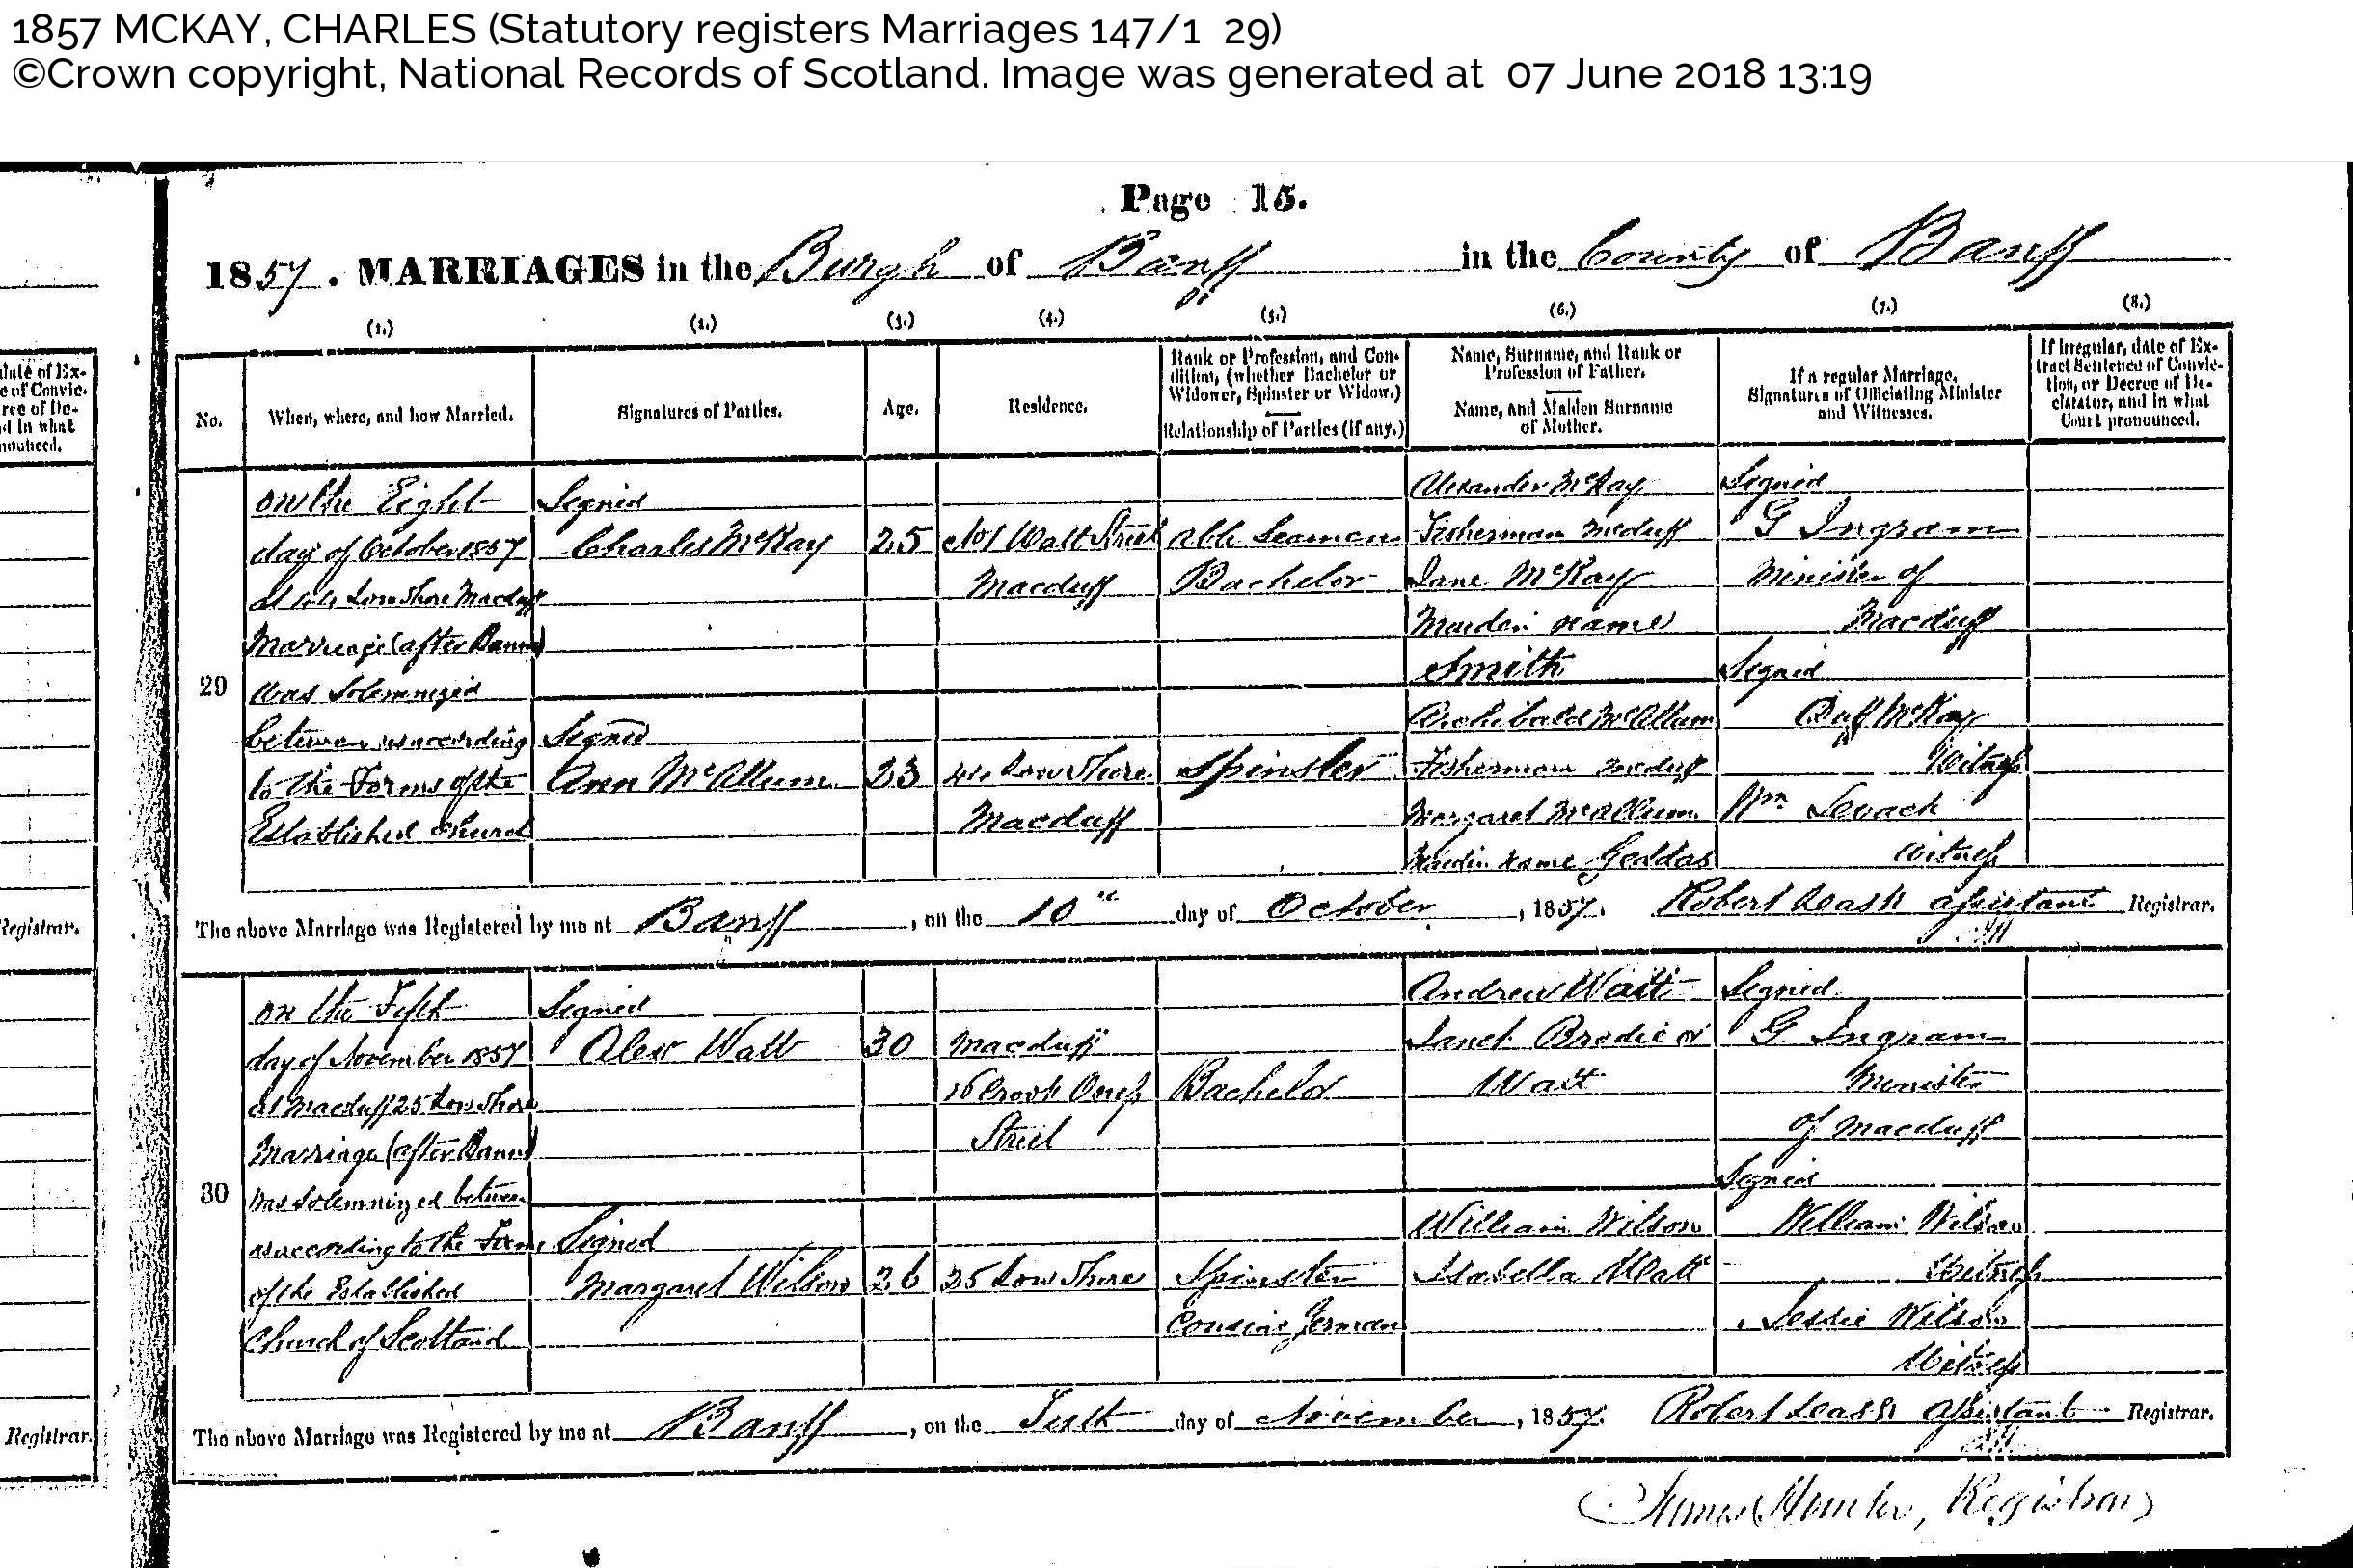 1857 MCKAY, CHARLES (Statutory registers Marriages 147/1 29)
©Crown copyright, National Records of Scotland. Image was generated at 07 June 2018 13:19
Page 15.
1857. MARRIAGES in the Burgh of Banff in the County of Banff
(1.) (2.) (3.) (4.) (5.) (6.) (7.) (8.)
No.
When, where, and how Married.
Signatures of Parties.
Age.
Residence.
Rank or Profession, and Con-
dition, (whether Bachelor or
Widower, Spinster or Widow.)
Relationship of Parties (if any.)
Name, Surname, and Rank or
Profession of Father.
Name, and Maiden Surname
of Mother.
If a regular Marriage,
Signatures of Officiating Minister
and Witnesses.
If Irregular, date of Ex-
tract Sentence of Convic-
tion, or Decree of De-
clarator, and in what
Court pronounced.
29
on the Eight
day of October 1857
at Low Shore Macduff
Marriage (after Banns)
was Solemnized
between us according
to the Forms of the
Established Church
Signed
Charles McKay
25
No 1 Watt Street
Macduff
Able Seaman
Bachelor
Alexander McKay
Fisherman Mcduff
Jane McKay
Maiden name
Smith
Signed
G Ingram
Minister of
Macduff
Signed
Duff McKay
Witness
Wm Levack
Witness
Signed
Ann McAllum
23
Low Shore
Macduff
Spinster
Archibald McAllum
Fisherman Mcduff
Margaret McAllum
Maiden name Geddas
The above Marriage was Registered by me at Banff, on the 10th day of October, 1857. Robert Leask assistant Registrar.
30
on the Fifth
day of November 1857
at Macduff 25 Low Shore
Marriage (after Banns)
was Solemnized between
us according to the Forms
of the Established
Church of Scotland
Signed
Alexr Watt
30
Macduff
16 Crook Oness
Street
Bachelor
Andrew Watt
Janet Brodie or
Watt
Signed
G. Ingram
Minister
of Macduff
Signed
William Wilson
Witness
Jessie Wilson
Witness
Signed
Margaret Wilson
26
25 Low Shore
Spinster
Cousins German
William Wilson
Isabella Watt
The above Marriage was Registered by me at Banff, on the Sixth day of November, 1857. Robert Leask assistant Registrar.
James Hunter, Registrar